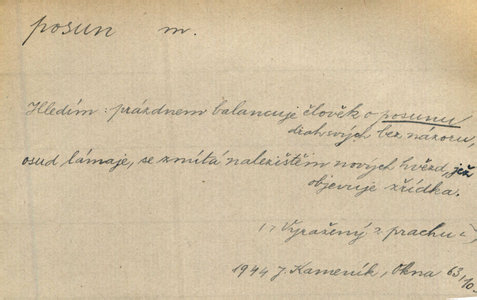 posun m.
Hledím: prázdnem balancuje člověk o posunu
drah svých bez názoru,
osud lámaje, se zmítá nalezištěm nových hvězd, jež
objevuje zřídka.
Vyražený z prachu
1944 J. Kameník, Okna 63